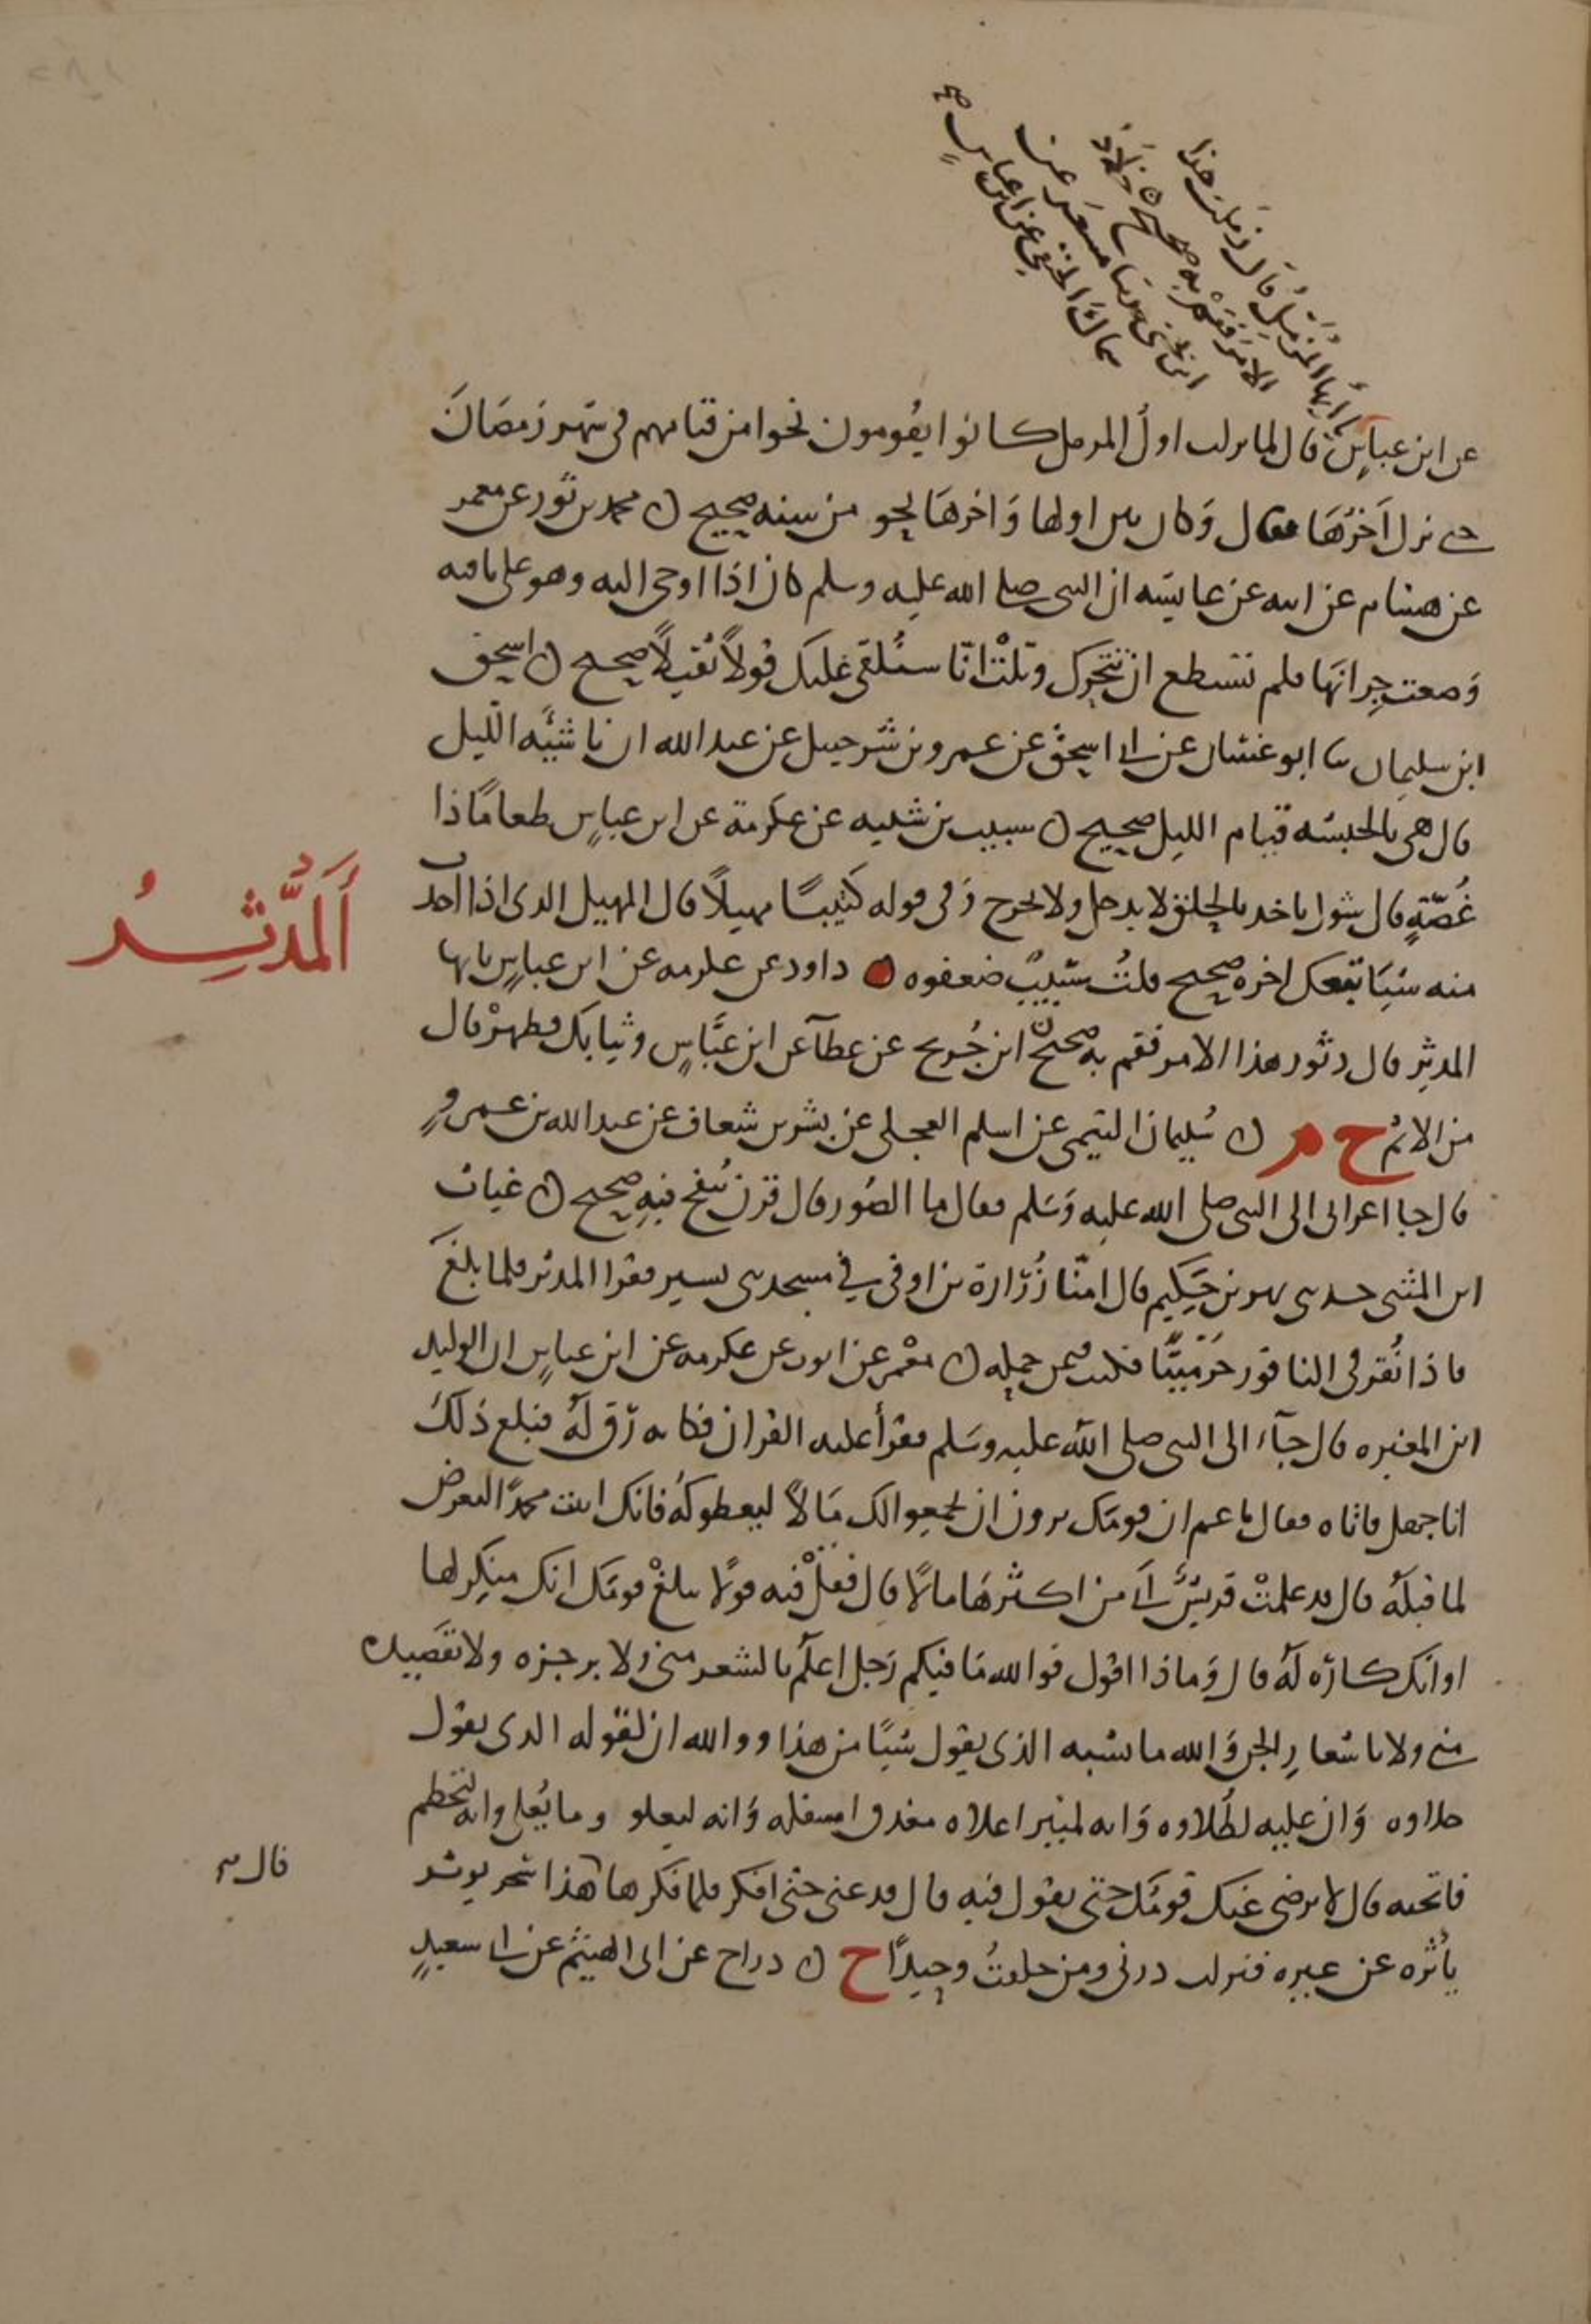 يا أيها المزمل قال زملت هذا
الامر فقم به صحيح ن خلاد
ابن يحيى ثنا مسعر عن
سماك الحنفي عن ابن عباس صح
عن ابن عباس قال لما نزلت اول المزمل كانوا يقومون نحوا من قيامهم في شهر رمضان
حتى نزل اخرها قال وكان بين اولها واخرها نحو من سنه صحيح ن محمد بن ثور عن معمر
عن هشام عن ابيه عن عايشه ان النبي صلى الله عليه وسلم كان اذا اوحي اليه وهو على ناقته
وضعت جرانها فلم تستطع ان تتحرك وتلت انا سنلقي عليك قولا ثقيلا صحيح ن اسحق
ابن سليمان ثنا ابو غسان عن ابي اسحق عن عمرو بن شرحبيل عن عبد الله ان ناشئه الليل
قال هي بالحبشه قيام الليل صحيح ن شبيب بن شيبه عن عكرمة عن ابن عباس طعاما ذا
غصة قال شوك ياخذ بالحلق لا يدخل ولا يخرج وفي قوله كثيبا مهيلا قال المهيل الذي اذا اخذت
منه شيئا تبعك اخره صحيح قلت شبيب ضعفوه داود عن عكرمه عن ابن عباس يايها
المدثر قال دثور هذا الامر فقم به صحيح ن ابن جريج عن عطآ عن ابن عباس وثيابك فطهر قال
من الاثم خ م ن سليمان التيمي عن اسلم العجلي عن بشر بن شغاف عن عبد الله بن عمرو
قال جا اعرابي الى النبي صلى الله عليه وسلم فقال ما الصور قال قرن ينفخ فيه صحيح ن غياث
ابن المثنى حدثني بهز بن حكيم قال امنا زرارة بن اوفى في مسجد بني قشير فقرا المدثر فلما بلغ
فاذا نقر في الناقور خر ميتا فكنت فيمن حمله ن معمر عن ايوب عن عكرمه عن ابن عباس ان الوليد
ابن المغيره قال جآء الى النبي صلى الله عليه وسلم فقرأ عليه القران فكانه رق له فبلغ ذلك
ابا جهل فاتاه فقال يا عم ان قومك يرون ان يجمعوا لك مالا ليعطوكه فانك اتيت محمدا لتعرض
لما قبله قال قد علمت قريش اني من اكثرها مالا قال فقل فيه قولا يبلغ قومك انك منكر لها
او انك كاره له قال وماذا اقول فوالله ما فيكم رجل اعلم بالشعر مني ولا برجزه ولا بقصيده
مني ولا باشعار الجن والله ما يشبه الذي يقول شيئا من هذا ووالله ان لقوله الذي يقول
حلاوه وان عليه لطلاوه وانه لمثير اعلاه مغدق اسفله وانه ليعلو وما يعلى وانه ليحطم
ما تحته قال لا يرضى عنك قومك حتى تقول فيه قال فدعني حتى افكر فلما فكر قال هذا سحر يوثر
ياثره عن غيره فنزلت ذرني ومن خلقت وحيدا خ ن دراج عن ابي الهيثم عن ابي سعيد
المدثر